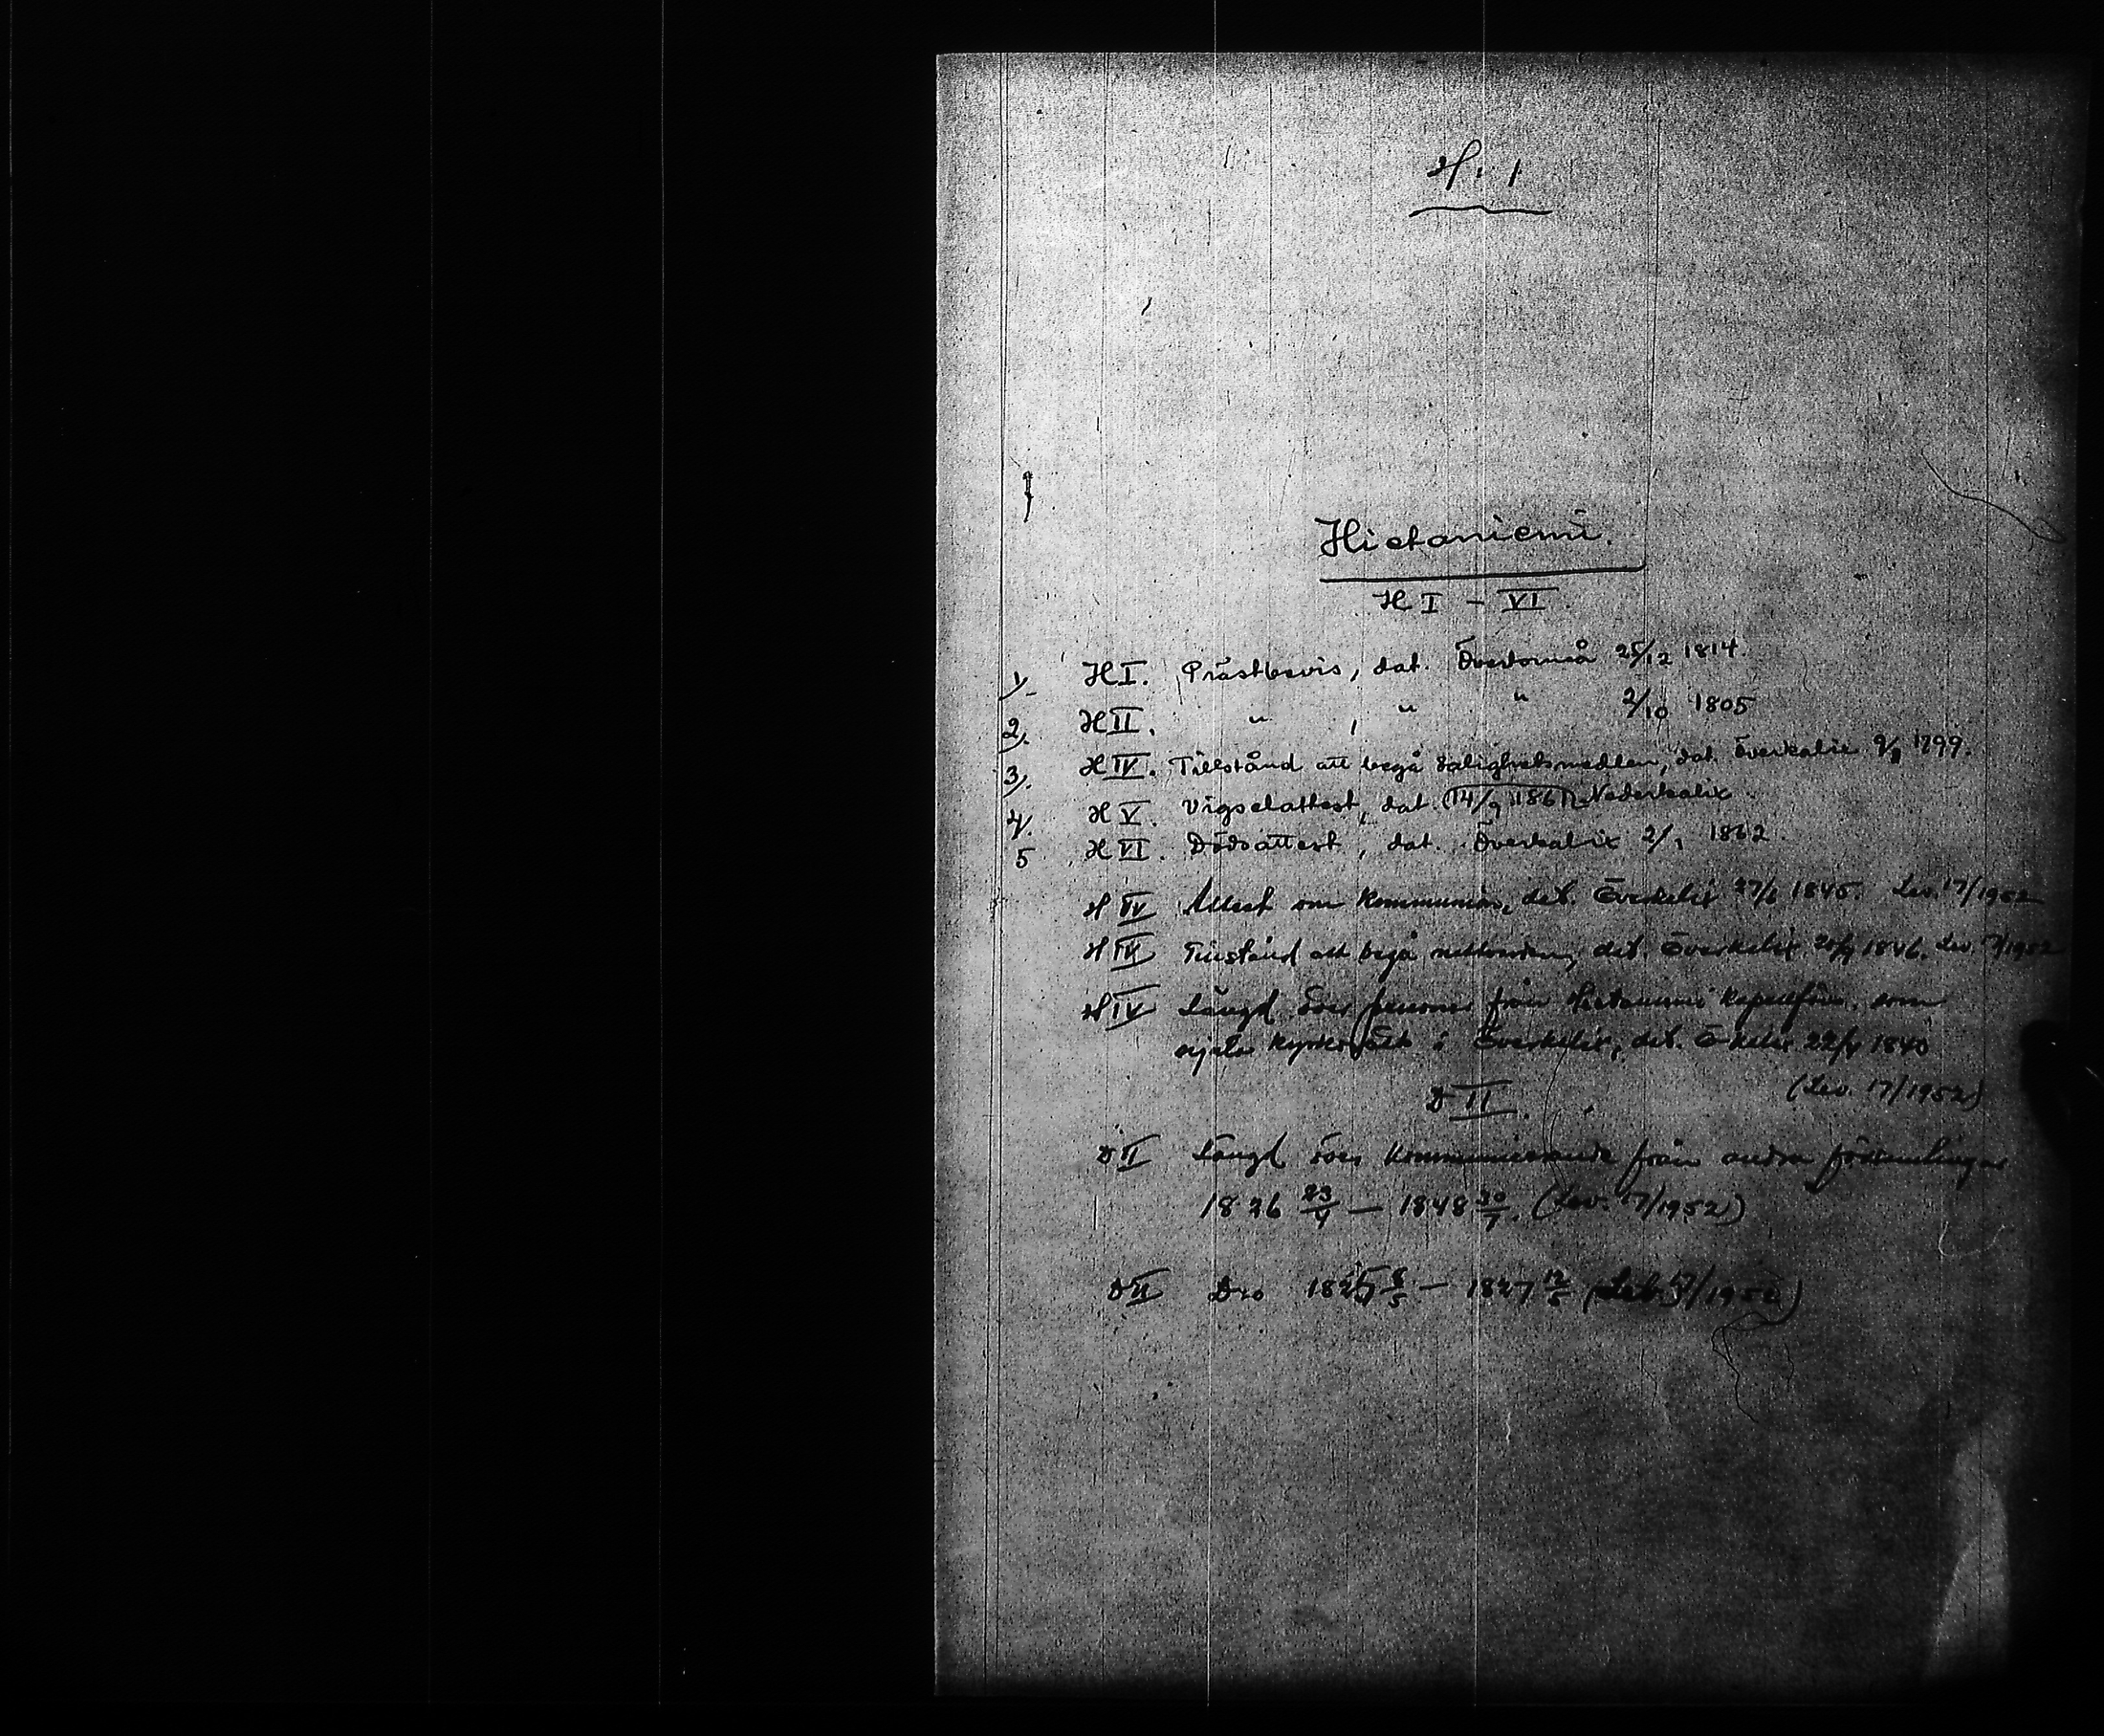 H. 1
Hietaniemi.
H I – VI
1). H I. Prästbevis, dat. Övertorneå 25/12 1814
2). H II. " , " " 2/10 1805
3). H IV. Tillstånd att begå salighetsmedlen, dat. Överkalix 9/9 1799.
4). H V. Vigselattest, dat. (14/9 1861) Nederkalix
5 H VI. Dödsattest, dat. Överkalix 2/1 1862.
H IV Attest om kommunion, dat. Överkalix 27/6 1845. Lev. 17/1952
H IV Tillstånd att begå nattvarden, dat. Överkalix 20/9 1846. Lev. 17/1952
H IV Längd över personer från Hietaniemi kapellförs. som
kyrka i Överkalix, dat. Ö-kalix 22/4 1840
(Lev. 17/1952)
D II.
D II Längd över kommunicerande från andra församlingar
1836 23/4 — 1848 30/7. (Lev. 17/1952)
D II Dro 1825 8/5 — 1827 12/5 (Lev. 17/1952)